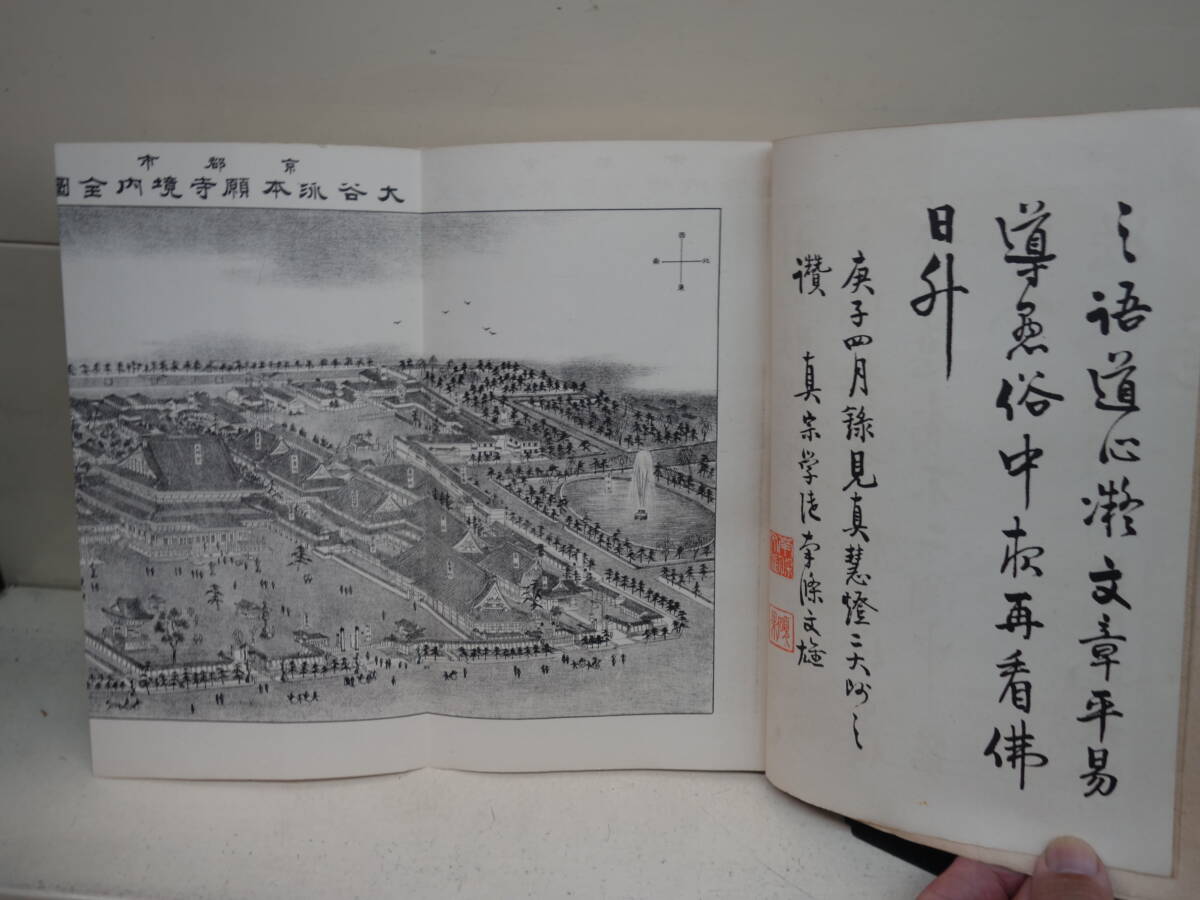 之語道心凝文章平易
導愚俗中夜再看佛
日升
庚子四月錄見真慧燈二大師之
讚 真宗学徒南條文雄
京都市
大谷派本願寺境内全圖
西
北
南
東